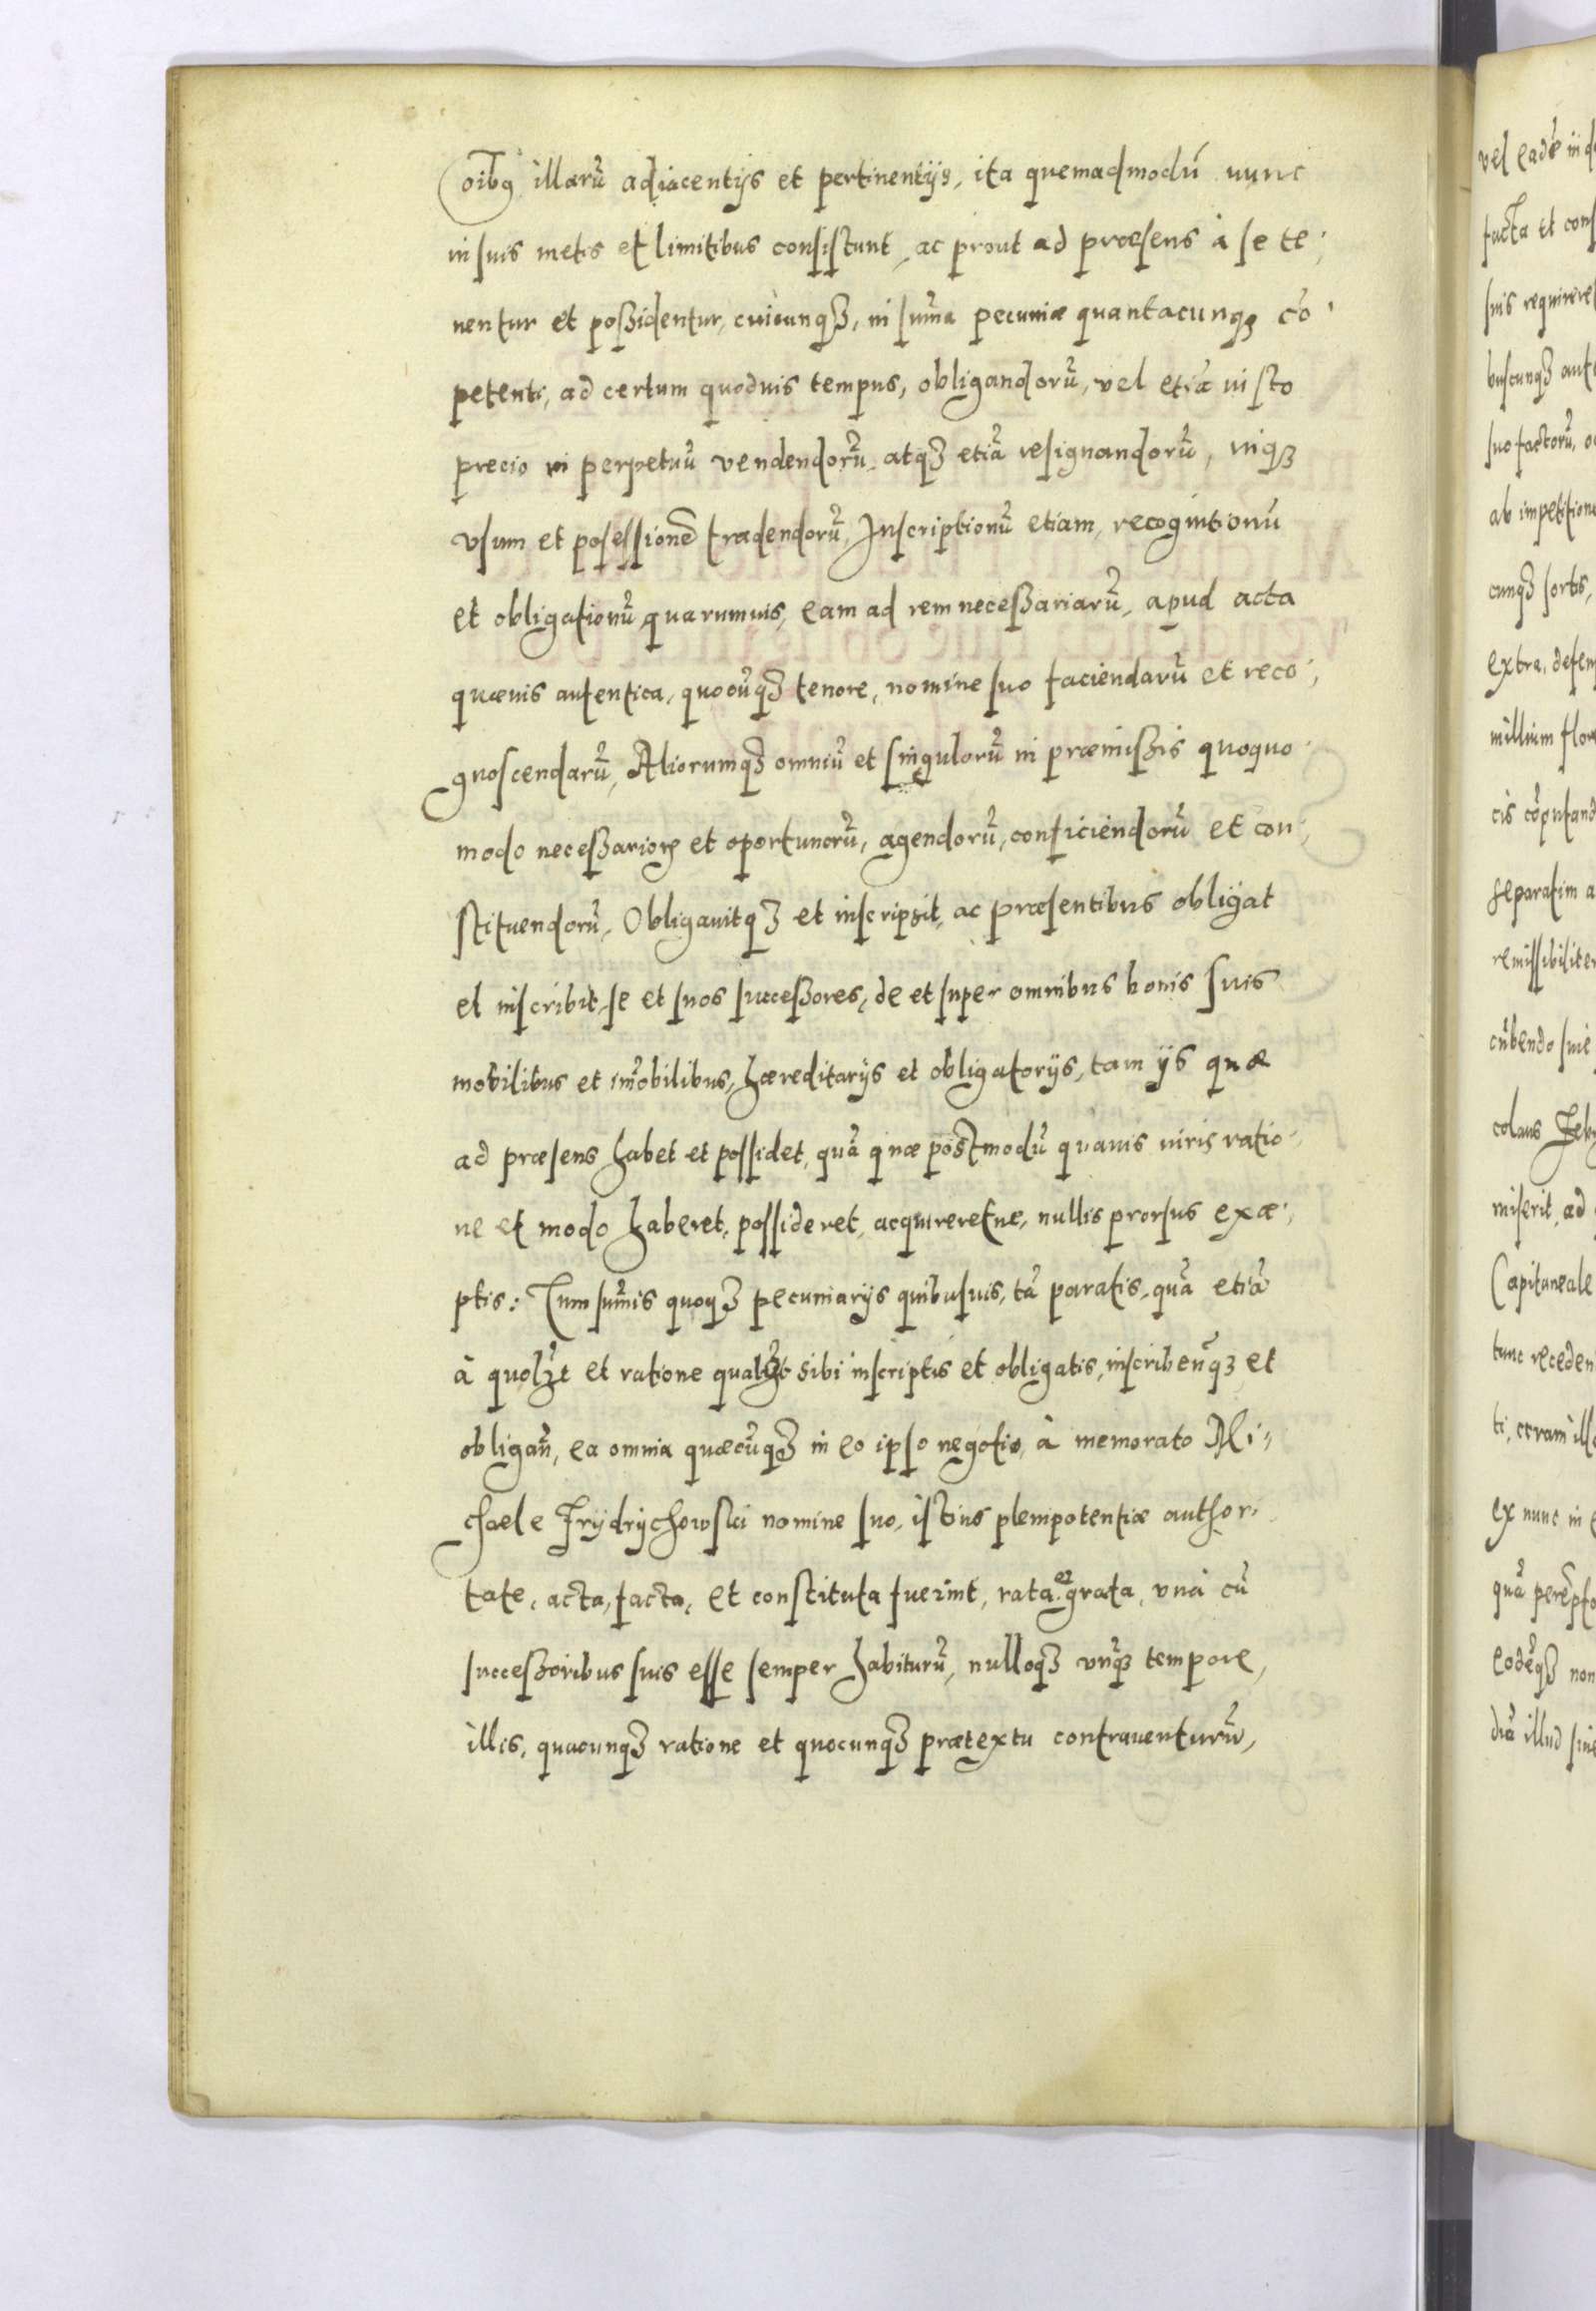 oibꝯ illarũ adiacentijs et pertinentijs, ita quemadmodũ nunc
in suis metis et limitibus consistunt, ac prout ad præsens à se te-
nentur et poßidentur, cuicunqꝫ, in sum̃a pecuniæ quantacunqꝫ cõ-
petenti, ad certum quoduis tempus, obligandorũ, vel etiã iusto
precio in perpetuũ vendendorũ, atqꝫ etiã resignandorũ, inqꝫ
vsum et posessionẽ tradendorũ, Inscriptionũ etiam, recognitionũ
et obligationũ quarumuis, eam ad rem neceßariarũ, apud acta
quæuis autentica, quocũqꝫ tenore, nomine suo faciendarũ et reco-
gnoscendarũ, Aliorumqꝫ omniũ et singulorũ in præmißis quoquo
modo neceßarioꝝ et oportunorũ, agendorũ, conficiendorũ et con-
stituendorũ, Obligauitqꝫ et inscripsit, ac præsentibus obligat
et inscribit, se et suos succeßores, de et super omnibus bonis suis
mobilibus et im̃obilibus, hæreditarijs et obligatorijs, tam ijs quæ
ad præsens habet et possidet, quã quæ postmodũ quauis iuris ratio-
ne et modo haberet, possideret, acquireretue, nullis prorsus exæ-
ptis: Tum sum̃is quoqꝫ pecuniarijs quibusuis, tã paratis, quã etiã
à quolꝫt et ratione qualꝫt sibi inscriptis et obligatis, inscribeñqꝫ et
obligañ, ea omnia quæcũqꝫ in eo ipso negotio, à memorato Mi-
chaele Frydrychowski nomine suo, istius plenipotentiæ authori-
tate, acta, facta, et constituta fuerint, rata et grata, vnà cũ
succeßoribus suis esse semper habiturũ, nulloqꝫ vnq̃ꝫ tempore,
illis, quacunqꝫ ratione et quocunqꝫ prætextu contrauenturũ,
vel eadẽ in
facta et cons
suis requirere
buscunqꝫ
suo factorũ,
ab impetitione
cunqꝫ sortis,
extra, defen
millium flore
cis cõputand
separatim a
remissibiliter
cũbendo sine
colaus
miserit, ad
Capituneale
tunc receden
ti, coram ille
ex nunc in
quã perẽpto
eodẽqꝫ non
diã illud sine